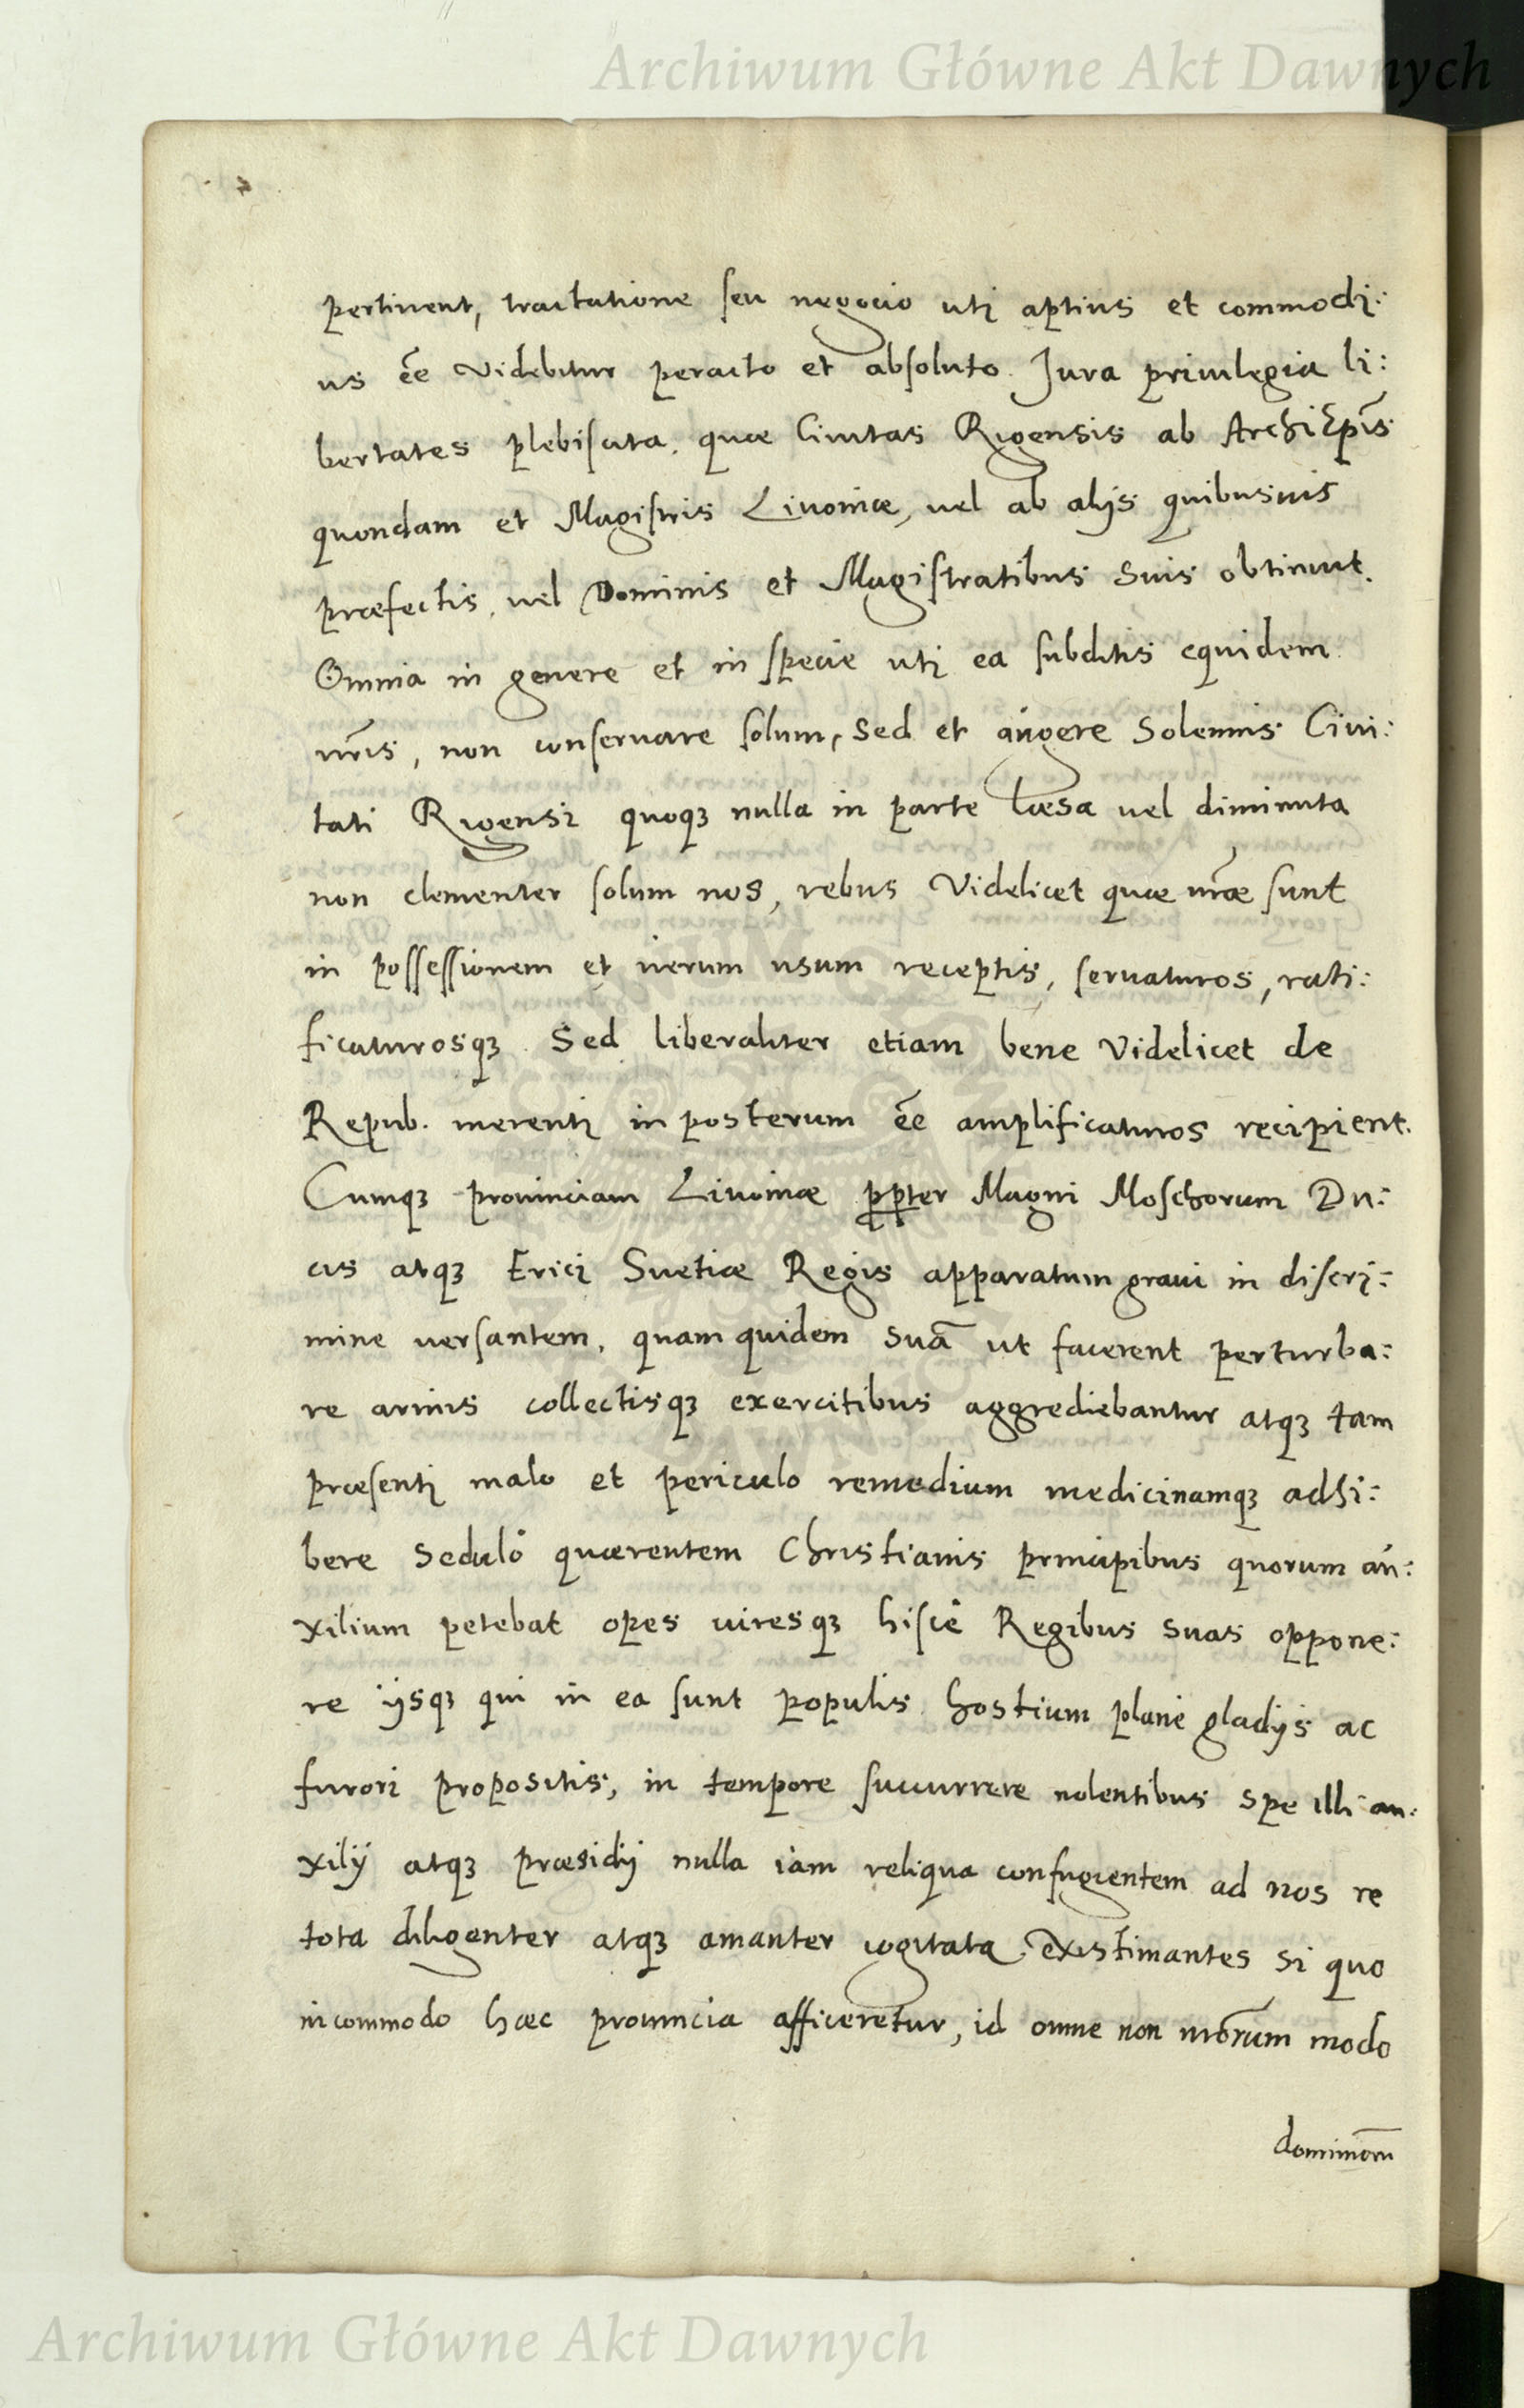 Archiwum Główne Akt Dawnych
pertinent, tractatione seu negocio utj aptius et commodj:
us ee͂ videbitur peracto et absoluto. Jura privilegia li:
bertates plebiscita. quae Civitas Rigensis ab ArchiEpi͂s
quondam et Magistris Livoniae, vel ab alijs quibusuis
praefectis, vel Dominis et Magistratibus suis obtinuit.
Omnia in genere et in specie utj ea subditis equidem
nr͂is, non conservare solum, sed et augere solemnis Civi:
tati Rigensi quoqꝫ nulla in parte laesa vel diminuta
non clementer solum nos, rebus videlicet quae nr͂ae sunt
in possessionem et verum usum receptis, servaturos, rati:
ficaturosqꝫ. Sed liberaliter etiam bene videlicet de
Repub. merentj in posterum ee͂ amplificaturos recipient.
Cumqꝫ provinciam Livoniae ꝓpter Magni Moschorum Du:
cis atqꝫ Ericj Suetiae Regis apparatum gravi in discrj:
mine versantem, quam quidem sua͂ ut facerent perturba:
re armis collectisqꝫ exercitibus aggrediebantur atqꝫ tam
praesentj malo et periculo remedium medicinamqꝫ adhi:
bere sedulo quaerentem Christianis principibus quorum au:
xilium petebat opes viresqꝫ hisce Regibus suas oppone:
re ijsqꝫ qui in ea sunt populis hostium plane gladijs ac
furori propositis, in tempore succurrere nolentibus spe illi au:
xilij atqꝫ praesidij nulla iam reliqua confugientem ad nos re
tota diligenter atqꝫ amanter cogitata existimantes si quo
incommodo haec provincia afficeretur, id omne non nr͂orum modo
dominiorum
Archiwum Główne Akt Dawnych